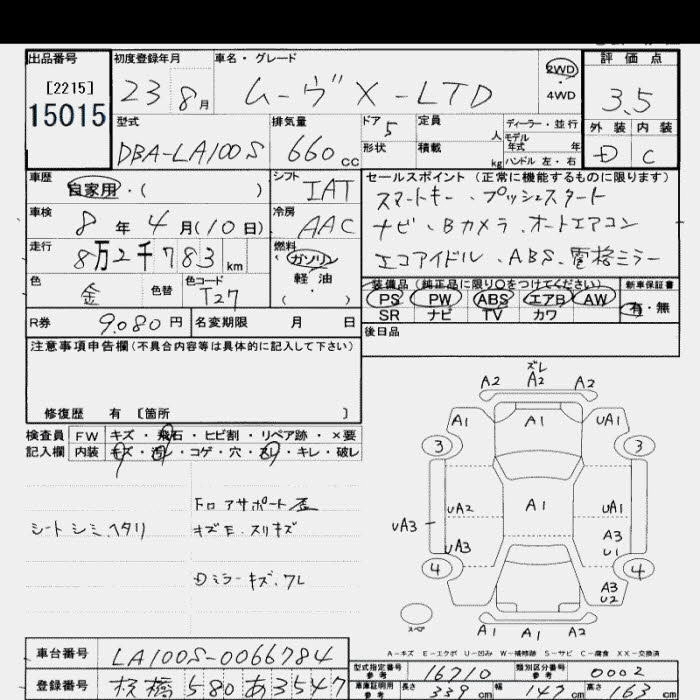 出品番号 初度登録年月 車名・グレード 評価点
[2215] 23 8月 ムーヴ X-LTD 2WD 4WD 3.5
15015
型式 排気量 ドア 5 定員 人 ディーラー・並行 外装 内装
DBA-LA100S 660cc 形状 積載 kg モデル年式 年 ハンドル 左・右 D C
車歴 自家用・( ) シフト IAT セールスポイント(正常に機能するものに限ります)
車検 8年4月(10日) 冷房 AAC スマートキー・プッシュスタート
ナビ・Bカメラ・オートエアコン
走行 8万2千783km 燃料 ガソリン 軽油 ( ・ ) エコアイドル・ABS・電格ミラー
色 金 色替 色コード T27 装備品(純正品に限り○をつけてください) 新車保証書
PS PW ABS エアB AW 有・無
SR ナビ TV カワ
R券 9,080円 名変期限 月 日 後日品
注意事項申告欄(不具合内容等は具体的に記入して下さい)
修復歴 有 [箇所 ]
検査員 FW キズ・飛石・ヒビ割・リペア跡・×要
記入欄 内装 キズ・汚レ・コゲ・穴・スレ・キレ・破レ
シートシミ、ヘタリ
キズE、スリキズ
Dミラーキズ、ワレ
ズレ
A2 A2 A2
A1 A1 UA1
3 3
UA2 A1 UA1
UA3 A3
UA3 U1
4 4
A3
U2
スペア
A1 A1 A2
A-キズ E-エクボ U-凹み W-補修跡 S-サビ C-腐食 XX-交換済
車台番号 LA100S-0066784 型式指定番号 参考 16710 類別区分番号 参考 0002
登録番号 板橋 580 あ 3547 車庫証明用 参考 長さ 339cm 幅 147cm 高さ 163cm